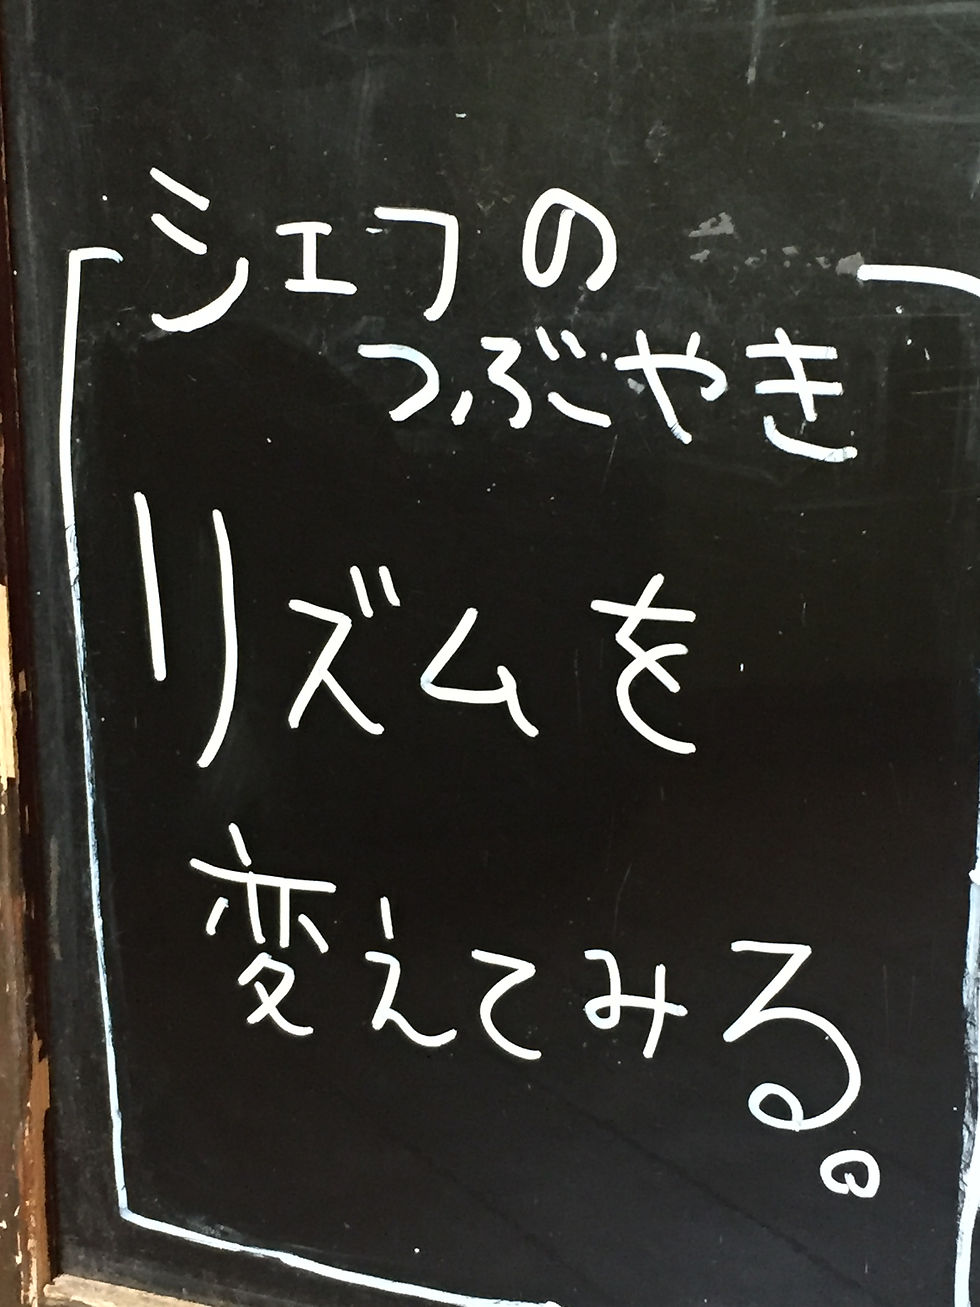 シェフの
つぶやき
リズムを
変えてみる。